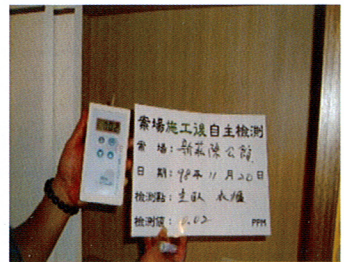 案場施工後自主檢測
案場:新莊陳公館
日期:98年11月20日
檢測點:主臥 衣櫃
檢測值:0.02 PPM